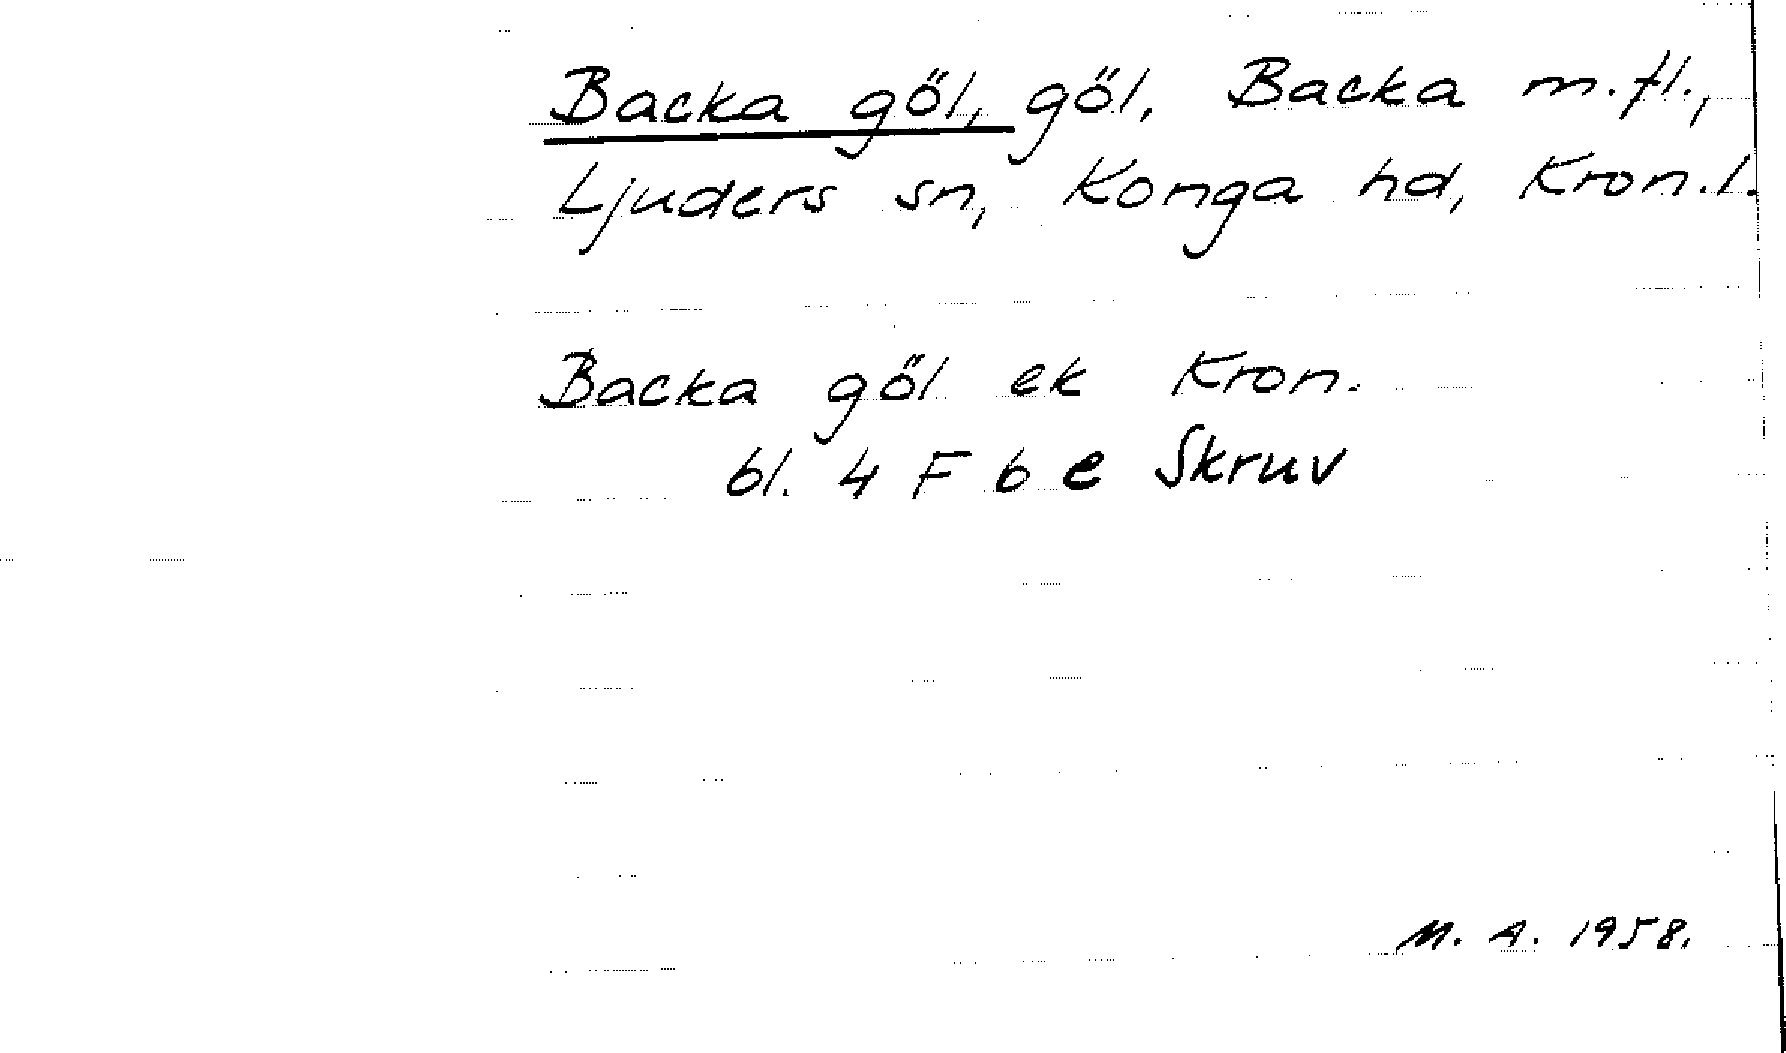 Backa göl, göl, Backa m.fl.,
Ljuders sn, Konga hd, Kron.l.
Backa göl ek Kron.
bl. 4 F b e Skruv
M. A. 1958.